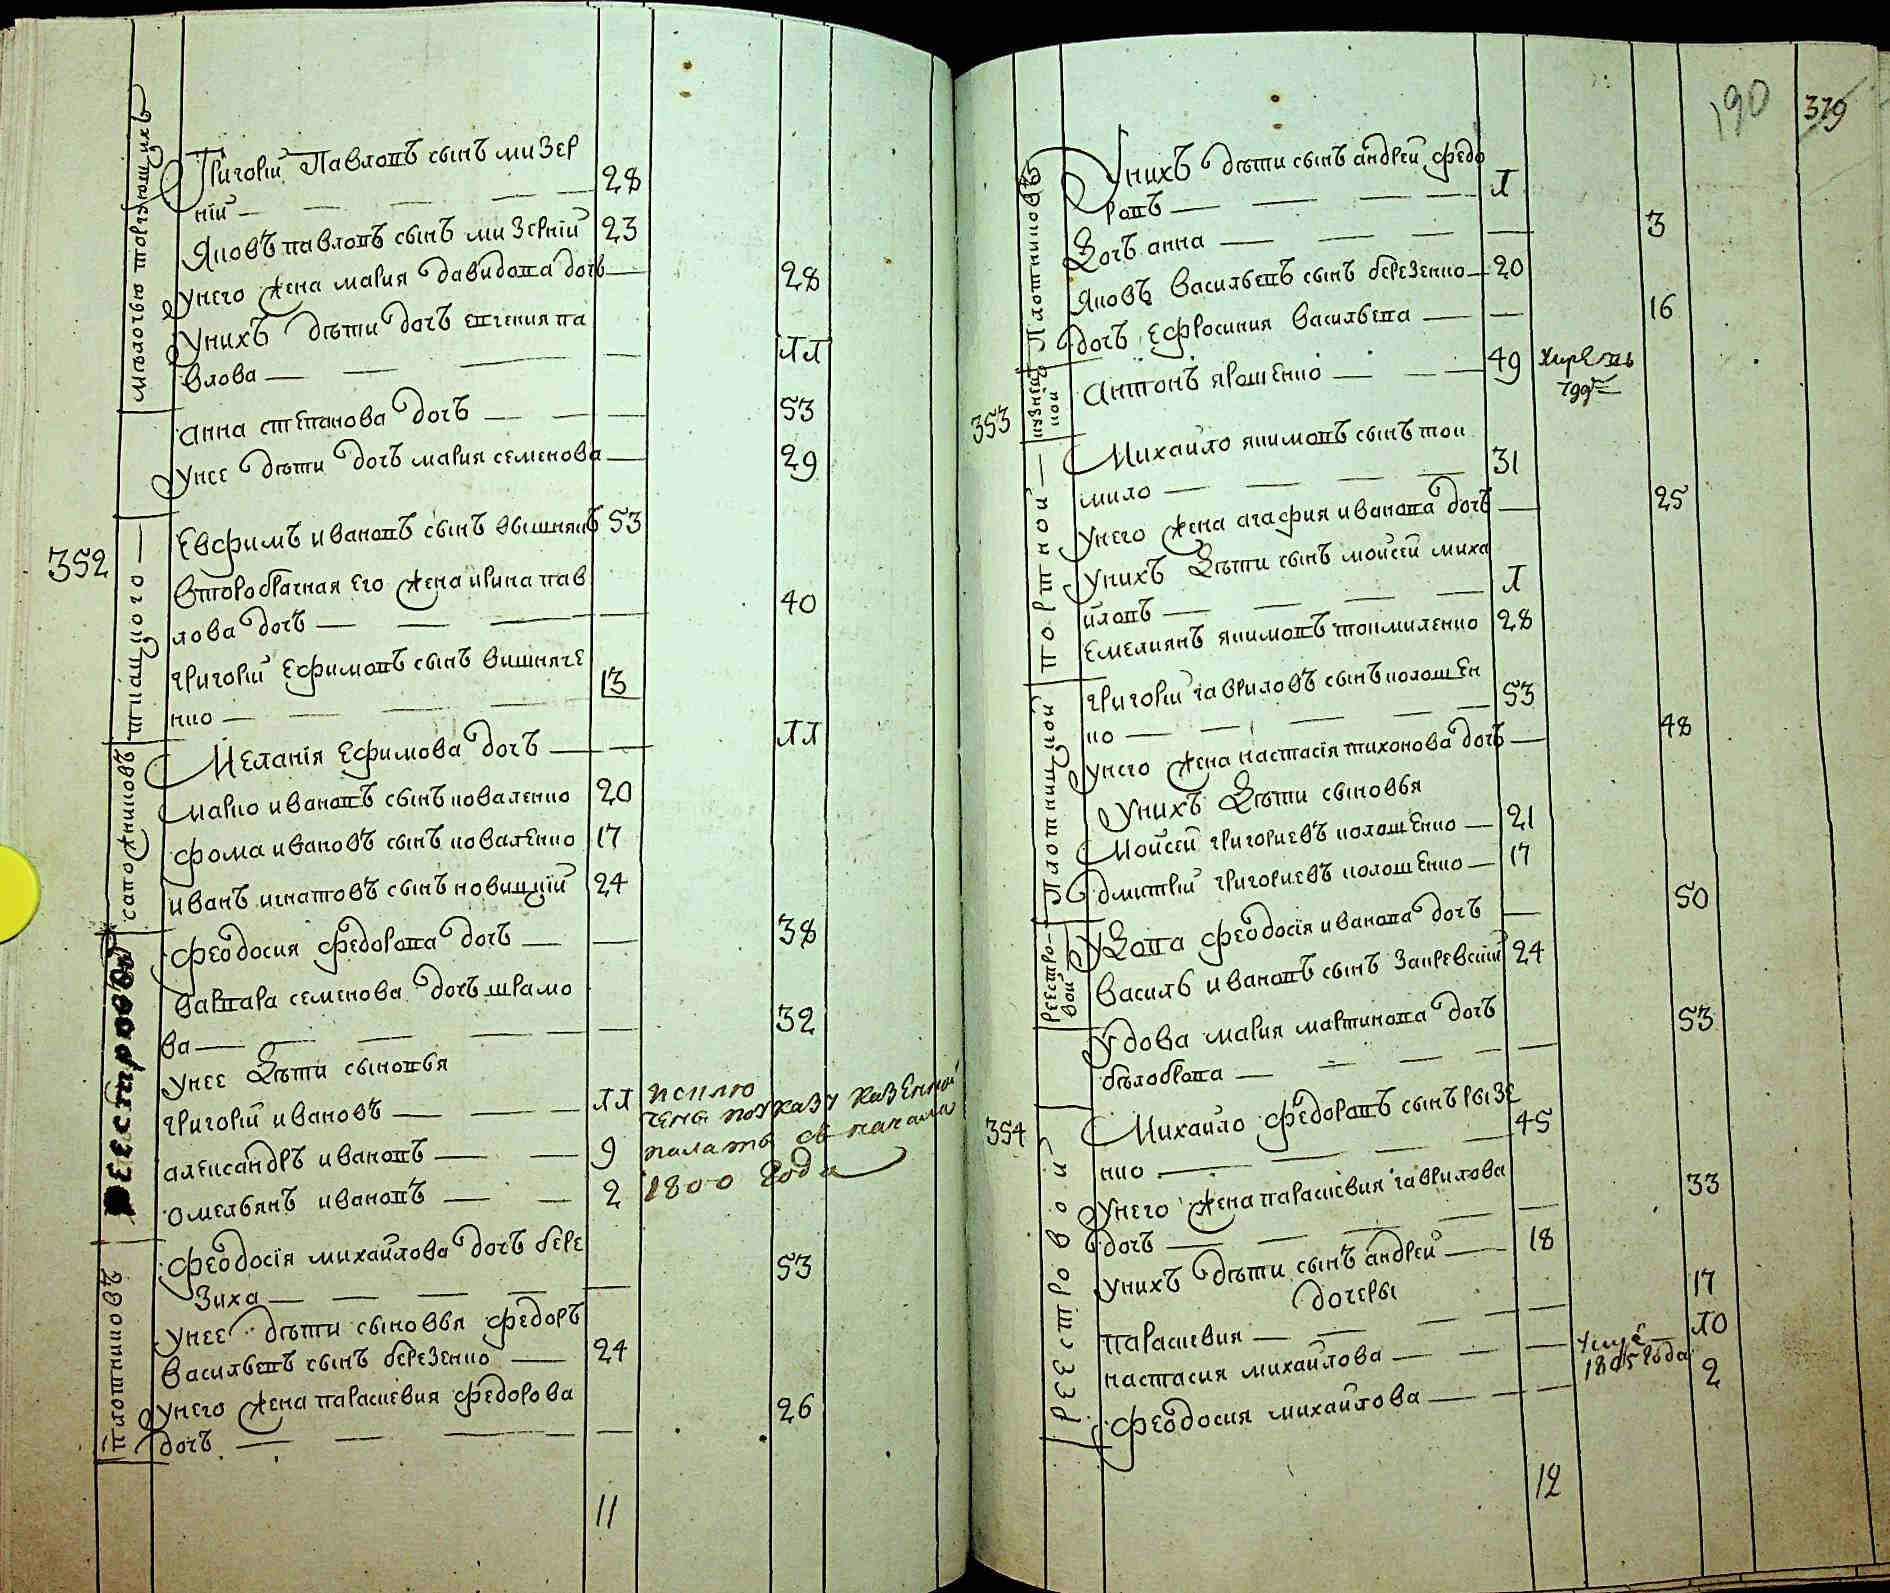 мѣлочью торгующихъ
Григорій Павловъ сынъ мизер
ній — 28
Яковъ павловъ сынъ мизерній 23
унего жена мария давидова дочь — 28
унихъ дѣти дочь евгения па
влова —
анна степанова дочь — 53
унее дѣти дочь мария семенова — 29
352
ткацкого —
Евфимъ ивановъ сынъ вышнякъ 53
второбрачная его жена ирина пав
лова дочь — 40
григорій ефимовъ сынъ вишняче
нко — 13
Меланія ефимова дочь —
сапожниковъ
марко ивановъ сынъ коваленко 20
фома ивановъ сынъ коваленко 17
иванъ игнатовъ сынъ новицкій 24
феодосия федорова дочь — 38
реестровой
варвара семенова дочь шрамо
ва — 32
унее дѣти сыновья
григорій ивановъ —
александръ ивановъ — 9
омельянъ ивановъ — 2
исклю
чены поуказу казенной
палаты съ начала
1800 года
плотниковъ
феодосія михайлова дочь бере
зиха — 53
унее дѣти сыновья федоръ
васильевъ сынъ березенко — 24
унего жена параскевия федорова
дочь — 26
11
190
379
Плотниковъ
Унихъ дѣти сынъ андрей федо
ровъ —
Дочь анна — 3
Яковъ васильевъ сынъ березенко — 20
дочь ефросиния васильева — 16
353
кузнѣц
кой
Антонъ ярошенко — 49
портной —
Михайло якимовъ сынъ ток
мило — 31
унего жена агафия иванова дочь — 25
унихъ дѣти сынъ мойсей миха
йловъ —
емелиянъ якимовъ токмиленко 28
Плотницкой
григорій гавриловъ сынъколошен
ко — 53
унего жена настасія тихонова дочь — 48
унихъ дѣти сыновья
Мойсей григориевъ колошенко — 21
дмитрій григориевъ колошенко — 17
реестро-
вой
удова феодосія иванова дочь — 50
василь ивановъ сынъ закревскій 24
удова мария мартинова дочь
бѣлоброва — 53
354
реестровой
Михайло федоровъ сынъ рызе
нко — 45
унего жена параскевия гаврилова
дочь — 33
унихъ дѣти сынъ андрей — 18
дочеры
параскевия — 17
настасия михайлова —
1805 года
феодосия михайлова — 2
12